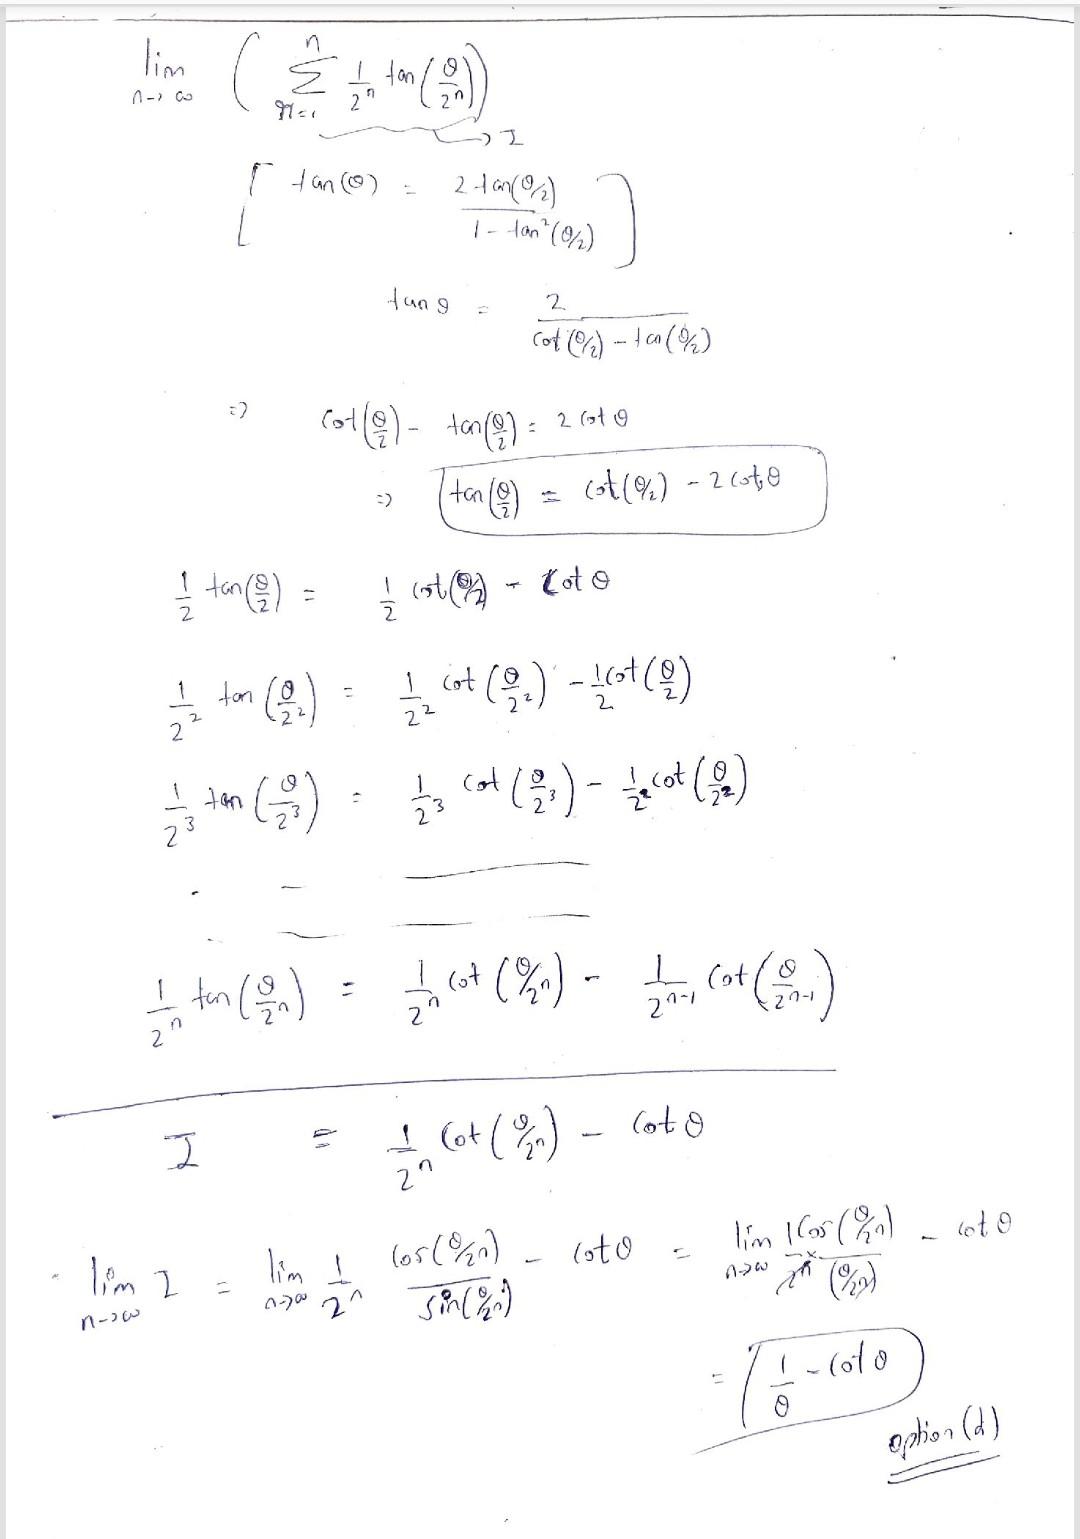 lim n→∞ ( Σ r=1 n 1/2^n tan(θ/2^n) )
→ I
[ tan(θ) = 2 tan(θ/2) / 1 - tan²(θ/2) ]
tan θ = 2 / cot(θ/2) - tan(θ/2)
=> cot(θ/2) - tan(θ/2) = 2 cot θ
=> tan(θ/2) = cot(θ/2) - 2 cot θ
1/2 tan(θ/2) = 1/2 cot(θ/2) - cot θ
1/2² tan(θ/2²) = 1/2² cot(θ/2²) - 1/2 cot(θ/2)
1/2³ tan(θ/2³) = 1/2³ cot(θ/2³) - 1/2² cot(θ/2²)
1/2^n tan(θ/2^n) = 1/2^n cot(θ/2^n) - 1/2^(n-1) cot(θ/2^(n-1))
I = 1/2^n cot(θ/2^n) - cot θ
lim n→∞ I = lim n→∞ 1/2^n cos(θ/2^n) / sin(θ/2^n) - cot θ = lim n→∞ 1/2^n × cos(θ/2^n) / (θ/2^n) - cot θ
= 1/θ - cot θ
option (d)